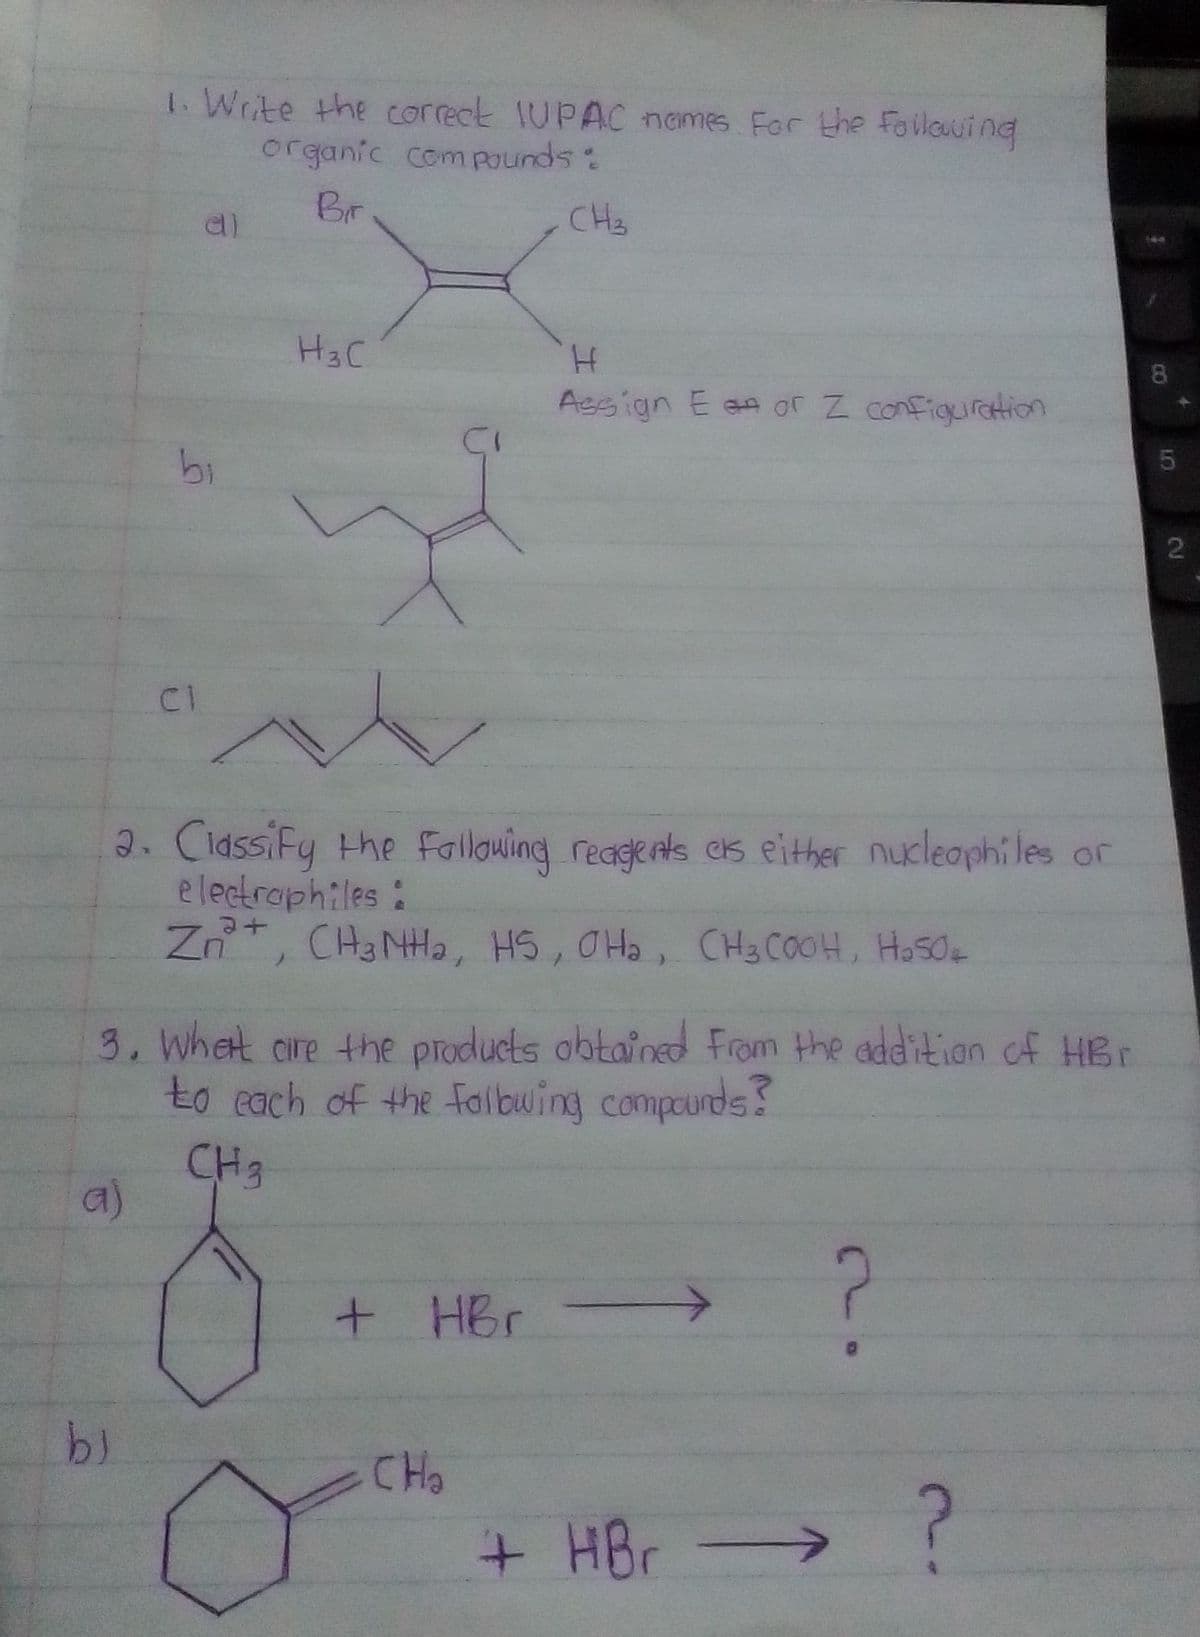 1. Write the correct IUPAC names For the following
organic compounds :
a)
Br
CH3
H3C
H
Assign E or Z configuration
b)
Cl
c)
2. Classify the following reagents as either nucleophiles or
electrophiles :
Zn²⁺, CH3NH2, HS, OH2, CH3COOH, H2SO4
3. What are the products obtained from the addition of HBr
to each of the following compounds?
CH3
a)
+ HBr → ?
b)
CH2
+ HBr → ?
8
5
2